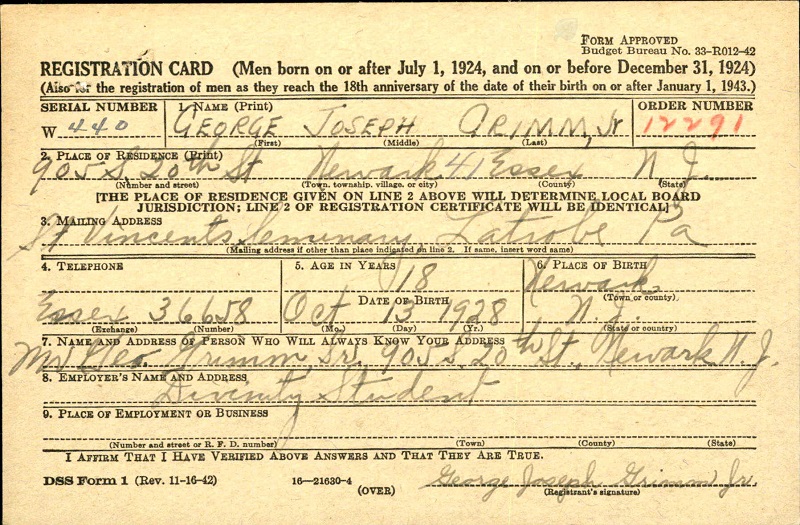 FORM APPROVED
Budget Bureau No. 33-R012-42
REGISTRATION CARD (Men born on or after July 1, 1924, and on or before December 31, 1924)
(Also for the registration of men as they reach the 18th anniversary of the date of their birth on or after January 1, 1943.)
SERIAL NUMBER 1. NAME (Print) ORDER NUMBER
W 440 GEORGE JOSEPH GRIMM, Jr 12291
(First) (Middle) (Last)
2. PLACE OF RESIDENCE (Print)
905 S. 20th St Newark 41 Essex N J.
(Number and street) (Town, township, village, or city) (County) (State)
[THE PLACE OF RESIDENCE GIVEN ON LINE 2 ABOVE WILL DETERMINE LOCAL BOARD
JURISDICTION; LINE 2 OF REGISTRATION CERTIFICATE WILL BE IDENTICAL]
3. MAILING ADDRESS
St Vincents Seminary Latrobe Pa
(Mailing address if other than place indicated on line 2. If same, insert word same)
4. TELEPHONE 5. AGE IN YEARS 6. PLACE OF BIRTH
18 Newark
DATE OF BIRTH (Town or county)
Essex 36658 Oct 13 1928 N. J.
(Exchange) (Number) (Mo.) (Day) (Yr.) (State or country)
7. NAME AND ADDRESS OF PERSON WHO WILL ALWAYS KNOW YOUR ADDRESS
Geo. Grimm, Sr. 905 S. 20th St, Newark N. J.
8. EMPLOYER'S NAME AND ADDRESS
Divinity Student
9. PLACE OF EMPLOYMENT OR BUSINESS
(Number and street or R. F. D. number) (Town) (County) (State)
I AFFIRM THAT I HAVE VERIFIED ABOVE ANSWERS AND THAT THEY ARE TRUE.
DSS Form 1 (Rev. 11-16-42) 16—21630-4 George Joseph Grimm Jr.
(OVER) (Registrant's signature)